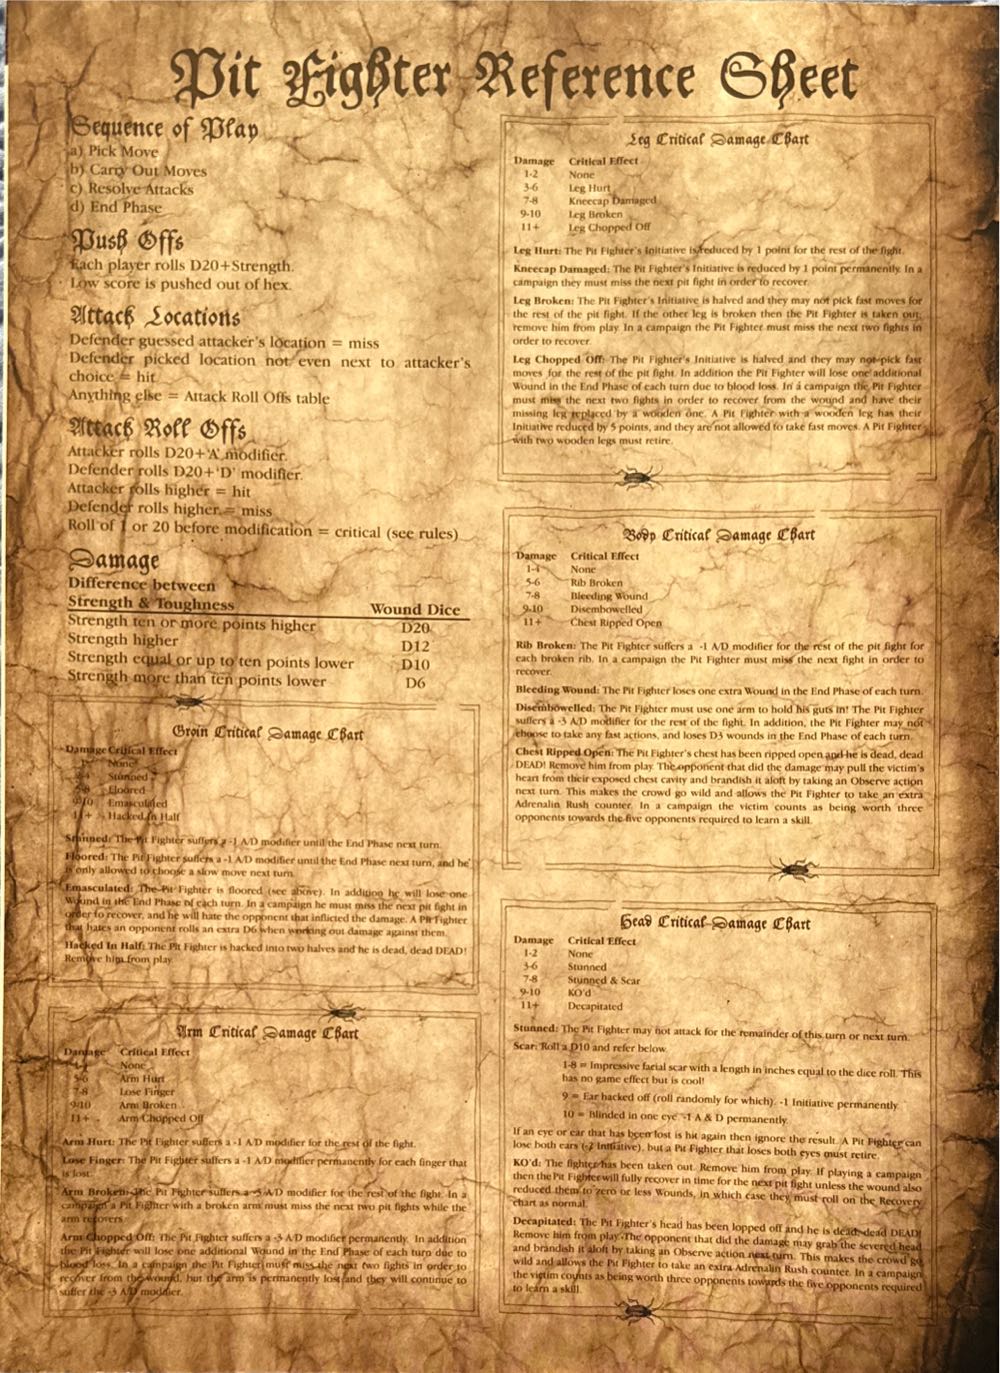 Pit Fighter Reference Sheet
Sequence of Play
a) Pick Move
b) Carry Out Moves
c) Resolve Attacks
d) End Phase
Push Offs
Each player rolls D20+Strength.
Low score is pushed out of hex.
Attack Locations
Defender guessed attacker's location = miss
Defender picked location not even next to attacker's
choice = hit
Anything else = Attack Roll Offs table
Attack Roll Offs
Attacker rolls D20+'A' modifier.
Defender rolls D20+'D' modifier.
Attacker rolls higher = hit
Defender rolls higher = miss
Roll of 1 or 20 before modification = critical (see rules)
Damage
Difference between
Strength & Toughness Wound Dice
Strength ten or more points higher D20
Strength higher D12
Strength equal or up to ten points lower D10
Strength more than ten points lower D6
Groin Critical Damage Chart
Damage Critical Effect
None
Stunned
Floored
9-10 Emasculated
11+ Hacked In Half
Stunned: The Pit Fighter suffers a -1 A/D modifier until the End Phase next turn.
Floored: The Pit Fighter suffers a -1 A/D modifier until the End Phase next turn, and he
is only allowed to choose a slow move next turn.
Emasculated: The Pit Fighter is floored (see above). In addition he will lose one
Wound in the End Phase of each turn. In a campaign he must miss the next pit fight in
order to recover, and he will hate the opponent that inflicted the damage. A Pit Fighter
that hates an opponent rolls an extra D6 when working out damage against them.
Hacked In Half: The Pit Fighter is hacked into two halves and he is dead, dead DEAD!
Remove him from play.
Arm Critical Damage Chart
Damage Critical Effect
1-4 None
5-6 Arm Hurt
7-8 Lose Finger
9-10 Arm Broken
11+ Arm Chopped Off
Arm Hurt: The Pit Fighter suffers a -1 A/D modifier for the rest of the fight.
Lose Finger: The Pit Fighter suffers a -1 A/D modifier permanently for each finger that
is lost.
Arm Broken: The Pit Fighter suffers a -3 A/D modifier for the rest of the fight. In a
campaign a Pit Fighter with a broken arm must miss the next two pit fights while the
arm recovers.
Arm Chopped Off: The Pit Fighter suffers a -3 A/D modifier permanently. In addition
the Pit Fighter will lose one additional Wound in the End Phase of each turn due to
blood loss. In a campaign the Pit Fighter must miss the next two fights in order to
recover from the wound, but the arm is permanently lost and they will continue to
suffer the -3 A/D modifier.
Leg Critical Damage Chart
Damage Critical Effect
1-2 None
3-6 Leg Hurt
7-8 Kneecap Damaged
9-10 Leg Broken
11+ Leg Chopped Off
Leg Hurt: The Pit Fighter's Initiative is reduced by 1 point for the rest of the fight.
Kneecap Damaged: The Pit Fighter's Initiative is reduced by 1 point permanently. In a
campaign they must miss the next pit fight in order to recover.
Leg Broken: The Pit Fighter's Initiative is halved and they may not pick fast moves for
the rest of the pit fight. If the other leg is broken then the Pit Fighter is taken out;
remove him from play. In a campaign the Pit Fighter must miss the next two fights in
order to recover.
Leg Chopped Off: The Pit Fighter's Initiative is halved and they may not pick fast
moves for the rest of the pit fight. In addition the Pit Fighter will lose one additional
Wound in the End Phase of each turn due to blood loss. In a campaign the Pit Fighter
must miss the next two fights in order to recover from the wound and have their
missing leg replaced by a wooden one. A Pit Fighter with a wooden leg has their
Initiative reduced by 5 points, and they are not allowed to take fast moves. A Pit Fighter
with two wooden legs must retire.
Body Critical Damage Chart
Damage Critical Effect
1-4 None
5-6 Rib Broken
7-8 Bleeding Wound
9-10 Disembowelled
11+ Chest Ripped Open
Rib Broken: The Pit Fighter suffers a -1 A/D modifier for the rest of the pit fight for
each broken rib. In a campaign the Pit Fighter must miss the next fight in order to
recover.
Bleeding Wound: The Pit Fighter loses one extra Wound in the End Phase of each turn.
Disembowelled: The Pit Fighter must use one arm to hold his guts in! The Pit Fighter
suffers a -3 A/D modifier for the rest of the fight. In addition, the Pit Fighter may not
choose to take any fast actions, and loses D3 wounds in the End Phase of each turn.
Chest Ripped Open: The Pit Fighter's chest has been ripped open and he is dead, dead
DEAD! Remove him from play. The opponent that did the damage may pull the victim's
heart from their exposed chest cavity and brandish it aloft by taking an Observe action
next turn. This makes the crowd go wild and allows the Pit Fighter to take an extra
Adrenalin Rush counter. In a campaign the victim counts as being worth three
opponents towards the five opponents required to learn a skill.
Head Critical Damage Chart
Damage Critical Effect
1-2 None
3-6 Stunned
7-8 Stunned & Scar
9-10 KO'd
11+ Decapitated
Stunned: The Pit Fighter may not attack for the remainder of this turn or next turn.
Scar: Roll a D10 and refer below.
1-8 = Impressive facial scar with a length in inches equal to the dice roll. This
has no game effect but is cool!
9 = Ear hacked off (roll randomly for which). -1 Initiative permanently.
10 = Blinded in one eye -1 A & D permanently.
If an eye or ear that has been lost is hit again then ignore the result. A Pit Fighter can
lose both ears (-2 Initiative), but a Pit Fighter that loses both eyes must retire.
KO'd: The fighter has been taken out. Remove him from play. If playing a campaign
then the Pit Fighter will fully recover in time for the next pit fight unless the wound also
reduced them to zero or less Wounds, in which case they must roll on the Recovery
chart as normal.
Decapitated: The Pit Fighter's head has been lopped off and he is dead, dead DEAD!
Remove him from play. The opponent that did the damage may grab the severed head
and brandish it aloft by taking an Observe action next turn. This makes the crowd go
wild and allows the Pit Fighter to take an extra Adrenalin Rush counter. In a campaign
the victim counts as being worth three opponents towards the five opponents required
to learn a skill.